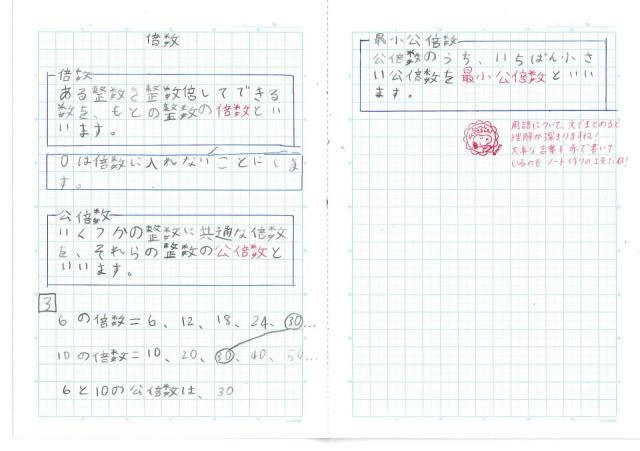 倍数
倍数
ある整数を整数倍してできる
数を、もとの整数の倍数とい
います。
0は倍数に入れないことにしま
す。
公倍数
いくつかの整数に共通な倍数
を、それらの整数の公倍数と
いいます。
3
6の倍数=6、12、18、24、30…
10の倍数=10、20、30、40、50…
6と10の公倍数は、30
最小公倍数
公倍数のうち、いちばん小さ
い公倍数を最小公倍数といい
ます。
用語について、文でまとめると
理解が深まりますね!
大事な言葉を赤で書いて
いるのもノート作りの工夫だね!